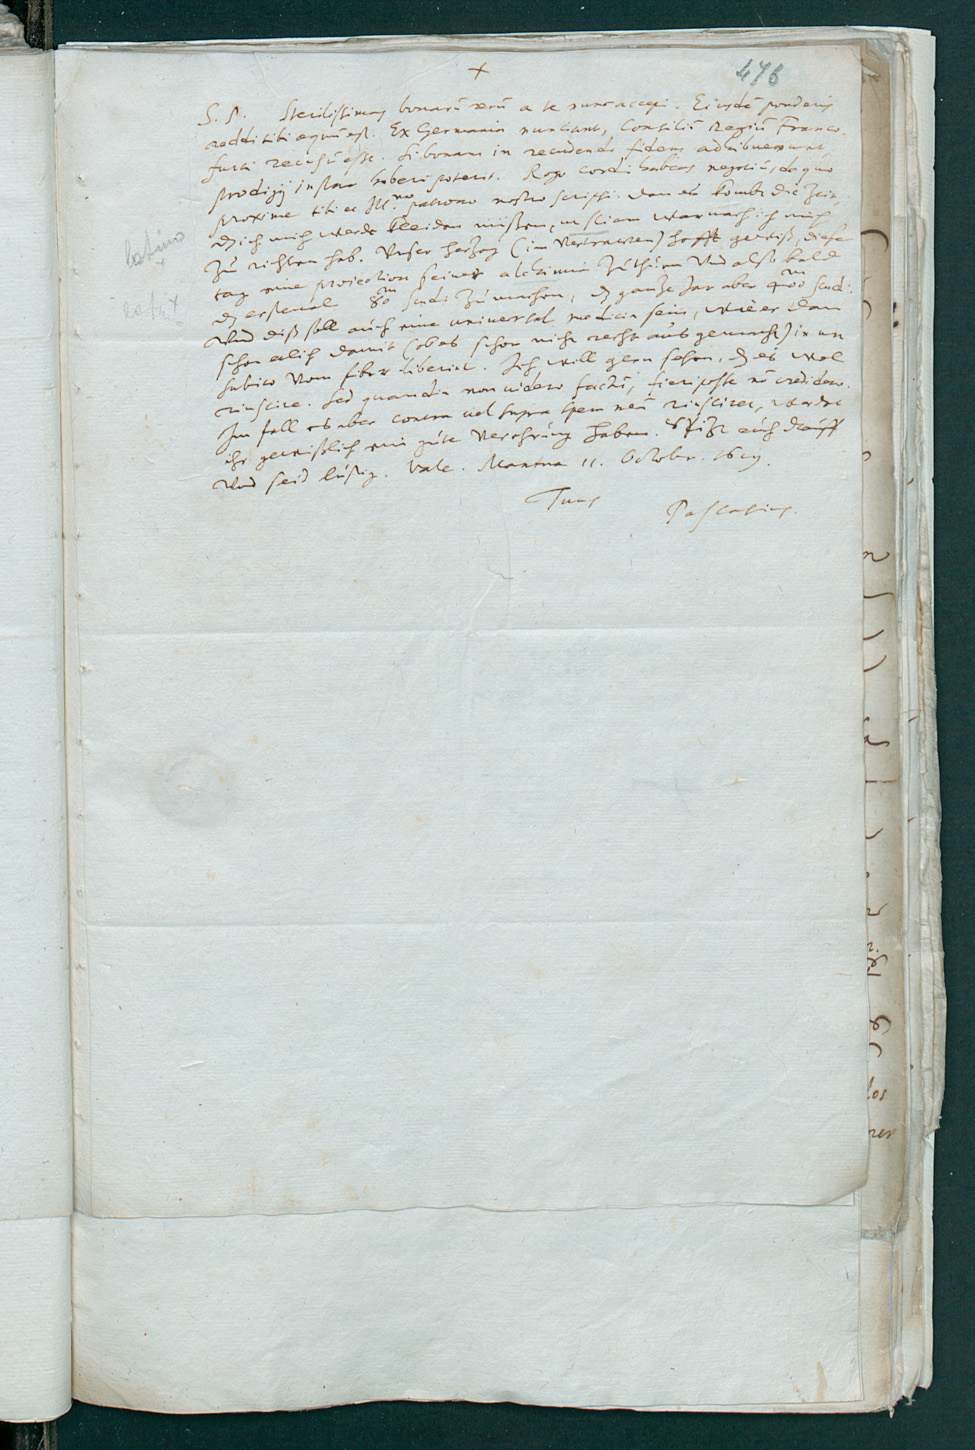 +
476
S. P. Sterilissimas bonarū rerū a te nunc accepi. Eiusdē ponderis
reddi tibi equū est. Ex Germania nuntiant, Consiliū Regiū Franco-
furti recusū esse. Si bonam in recudendo fidem adhibuerunt,
prodigij instar haberi poterit. Rogo cordi habeas negotiū, de quo
proxime tibi et Ill.mo patrono nostro scripsi. dan es kombt die Zeit,
dz ich mich werde kleiden müssen, ut sciam warnach ich mich
Zu richten hab. Unser Herzog (in Vertrawen) hofft gewiß, diese
tag eine projection seiner alchimia zu thun Und also bald
dz erstemal 80m scudi zu machen, dz ganze Jar aber 400m scudi.
Und diß soll auch eine universal medicin sein, wie er dan
schon etlich damit (ob es schon nicht recht ausgemacht) in un
subito vom fiber liberirt. Ich will gern sehen, dz es wol
riuscire. Sed quamdiu non videro factū, fieri posse nō credidero.
Im fall es aber contra vel supra spem meā riusciret, werdet
ihr gewißlich ein gute Verehrung haben. Spitzt euch drauff
Und seid lustig. Vale. Mantua 11. October. 1619.
Tuus
Paschasius.
latino